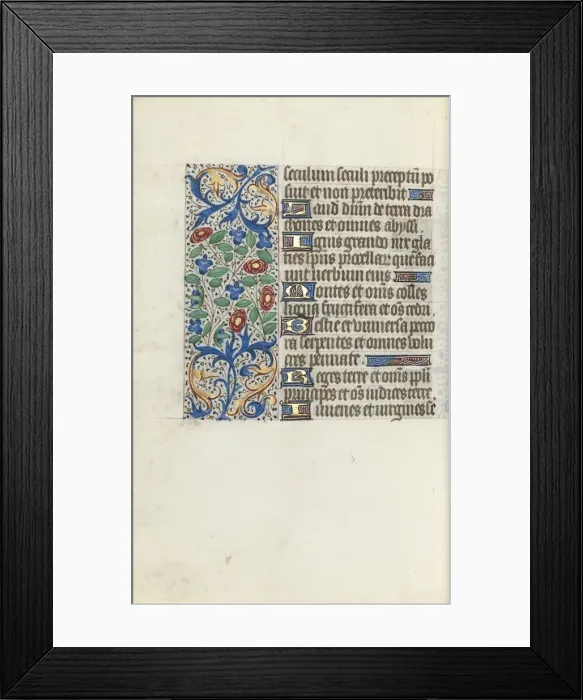 seculum seculi preceptū po
suit et non preteribit
Laud dnm̄ de terra dra
chones et omnes abyssi.
Ignis grando nix gla
cies sp̄us procellar̄ que faci
unt uerbum eius
Montes et om̄s colles
ligna fructifera et oēs cedri.
Bestie et vniuersa peco
ra serpentes et omnes volu
cres pennate.
Reges terre et om̄s pp̄li
principes et oēs iudices terre.
Iuuenes et uirgines se